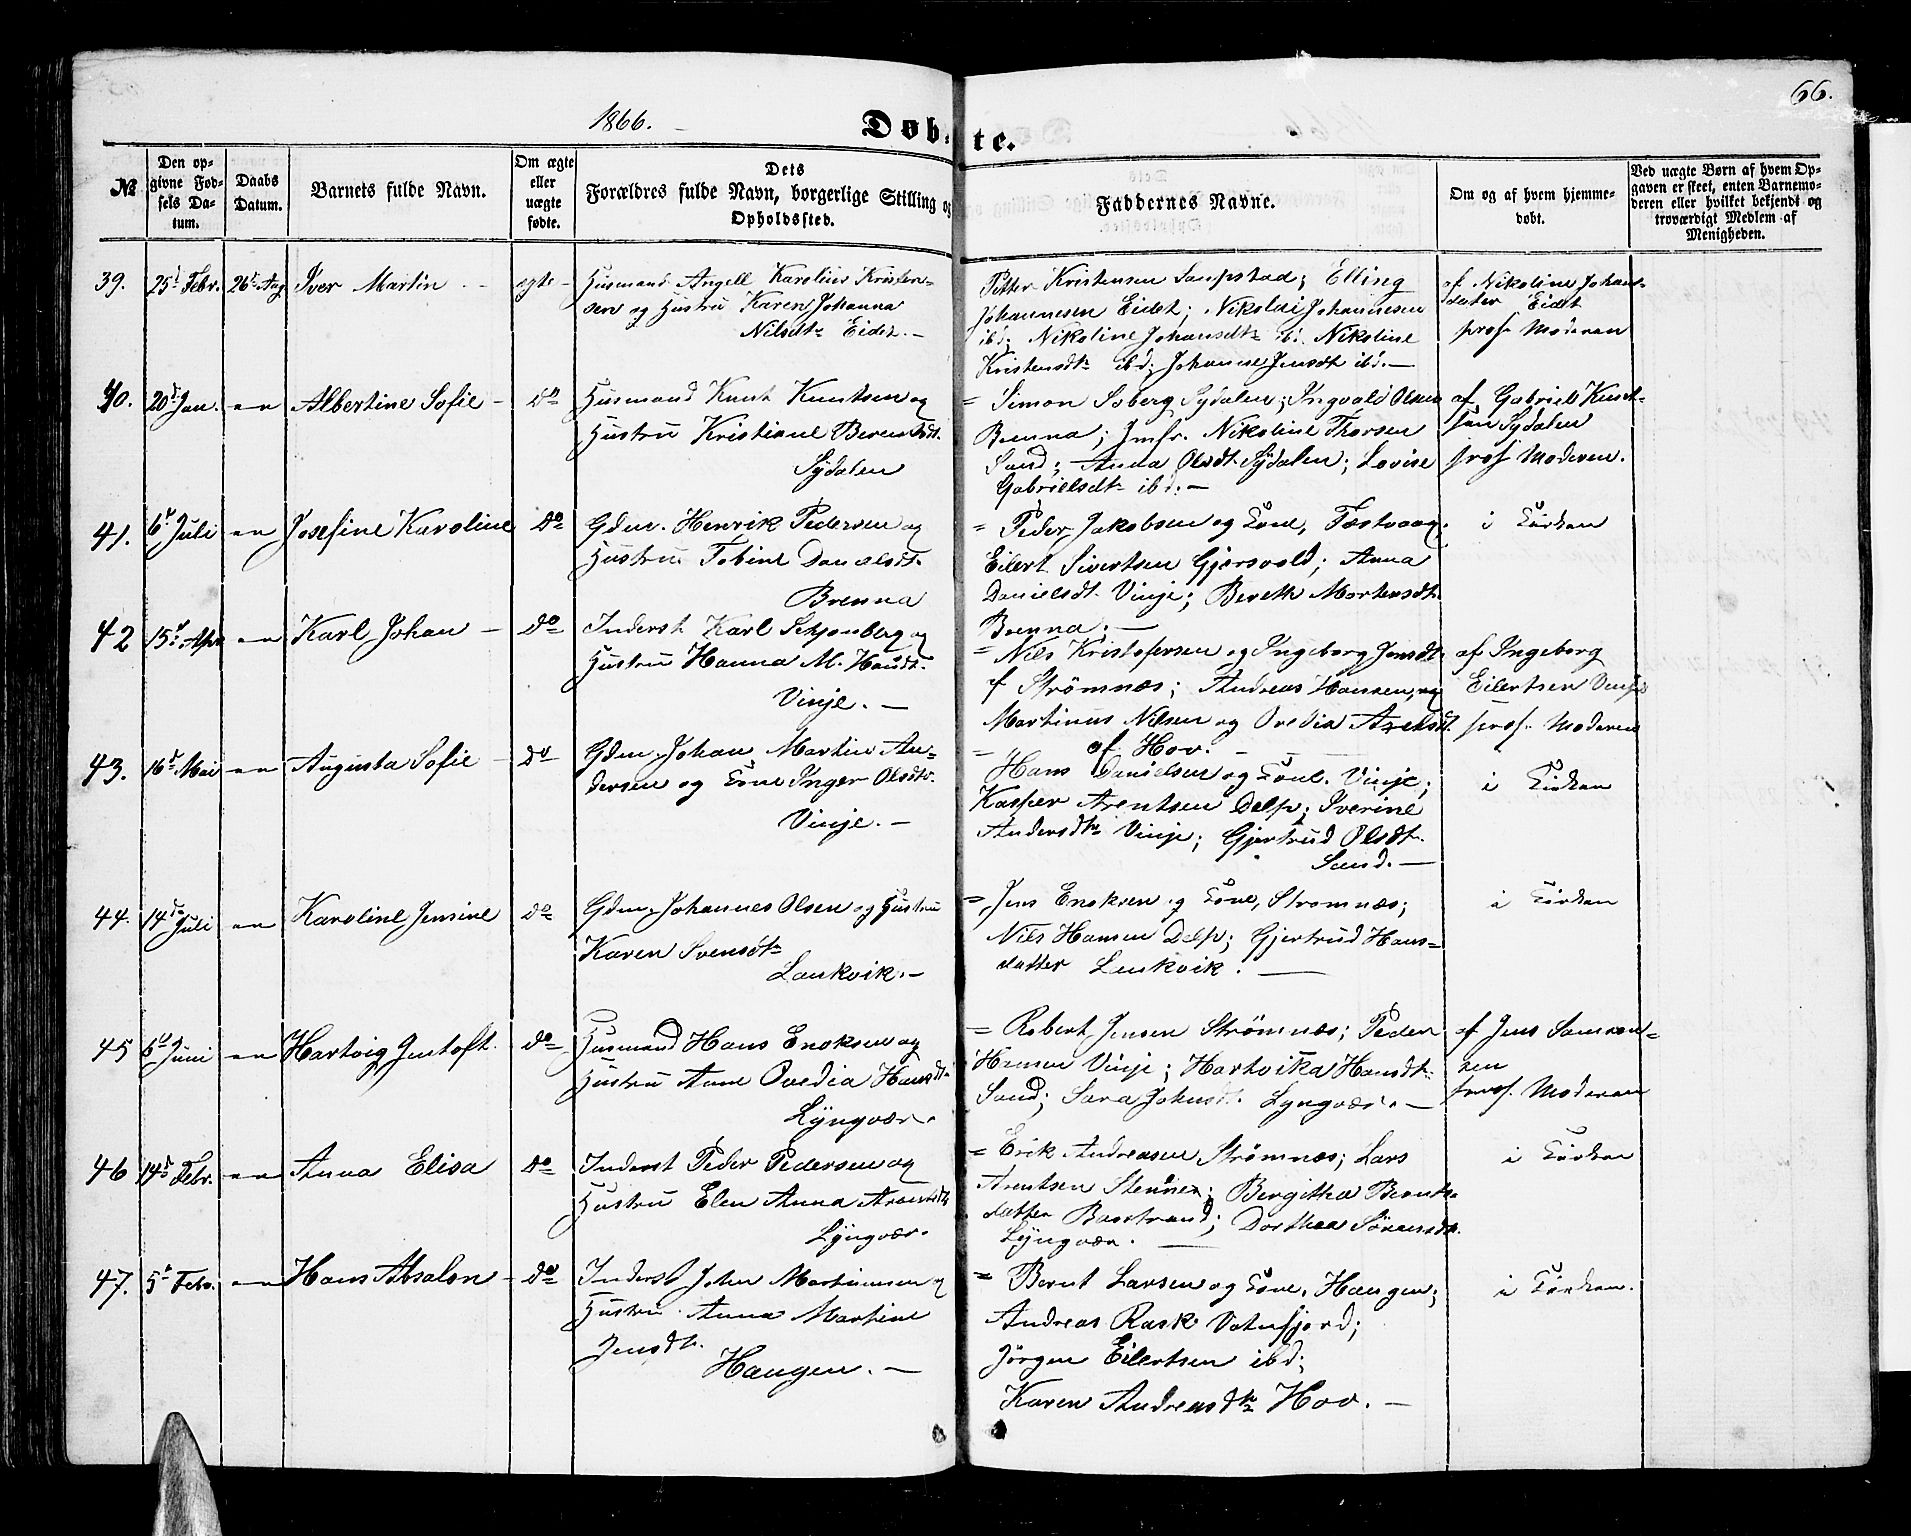 66.
1866.
Døbte.
№
Den opgivne Fødsels Datum.
Daabs Datum.
Barnets fulde Navn.
Om ægte eller uægte fødte.
Dets Forældres fulde Navn, borgerlige Stilling og Opholdssted.
Faddernes Navne.
Om og af hvem hjemmedøbt.
Ved uægte Børn af hvem Opgaven er skeet, enten Barnemoderen eller hvilket bekjendt og troværdigt Medlem af Menigheden.
39. 25d Febr. 26d Aug Iver Martin - ægte -
Husmand Angell Karolius Kristen-
sen og Hustru Karen Johanna
Nilsdtr Eidet. -
Petter Kristensen Saupstad; Elling
Johannesen Eidet; Nikolai Johannesen
ibd; Nikoline Johansdtr ibd. Nikoline
Kristensdtr ibd; Johanne Jensdt ibd. -
af Nikoline Johans-
datter Eidet
præs. Moderen
40. 20d Jan. Albertine Sofie - do
Husmand Knut Knutsen og
Hustru Kristiane Berentsdt.
Sydalen
= Simon Soberg Sydalen; Ingvald Olsen
Brenna; Jmfr. Nikoline Thorsen
Sand; Anna Olsdt. Sydalen; Lovise
Gabrielsdtr ibd. -
af Gabriel Knut-
sen Sydalen
præs Moderen.
41. 6d Juli Josefine Karoline do
Gdm. Henrik Pedersen og
Hustru Tobine Danielsdt.
Brenna
= Peder Jakobsen og Kone, Festvaag;
Eilert Sivertsen Gjersvold; Anna
Danielsdt. Vinje; Bereth Mortensdt.
Brenna; -
i Kirken
42 15d Apr Karl Johan - do
Inderst Karl Schjønberg og
Hustru Hanna M. Hansdt.
Vinje. -
= Nils Kristofersen og Ingeborg Jensdt.
af Strømnæs; Andreas Hansen, og
Martinus Nilsen og Ovedia Arntsdt.
af Hov. -
af Ingeborg
Eilertsen Vinje
præs. Moderen
43. 16d Mai Augusta Sofie - do
Gdm. Johan Martin An-
dersen og Kone Inger Olsdtr.
Vinje. -
= Hans Danielsen og Kone. Vinje;
Kasper Arentsen Delp; Iverine
Andersdtr Vinje; Gjertrud Olsdt.
Sand. -
i Kirken
44. 14d Juli Karoline Jensine do
Gdm. Johannes Olsen og Hustru
Karen Svensdtr
Laukvik. -
= Jens Enoksen og Kone, Strømnæs;
Nils Hansen Delp; Gjertrud Hans-
datter Laukvik. -
i Kirken
45 6d Juni Hartvig Jentoft. do
Husmand Hans Enoksen og
Hustru Anne Ovedia Hansdt.
Lyngvær.
= Robert Jensen Strømnæs; Peder
Hansen Vinje; Hartvika Hansdt.
Sand; Sara Johnsdt. Lyngvær. -
af Jens Samson-
sen
præs. Moderen
46 14d Febr. Anna Elisa do
Inderst Peder Pedersen og
Hustru Elen Anna Arentsdtr
Lyngvær.
= Erik Andreasen Strømnæs; Lars
Arentsen Stennes; Bergitha Bernts-
datter Baastrand; Dorthea Sørensdtr.
Lyngvær. -
i Kirken
47. 5d Febr. Hans Absalon - do
Inderst John Martinusen og
Hustru Anna Martine
Jensdt.
Haugen. -
= Bernt Larsen og Kone, Haugen;
Andreas Rask Vatnfjord;
Jörgen Eilertsen ibd;
Karen Andreasdtr Hov. -
i Kirken.